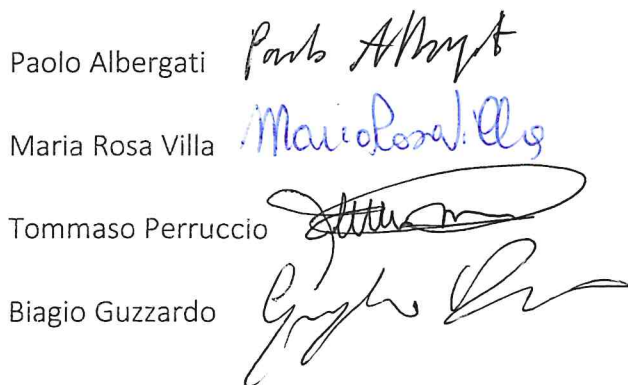 Paolo Albergati Paolo Albergati
Maria Rosa Villa Maria Rosa Villa
Tommaso Perruccio
Biagio Guzzardo